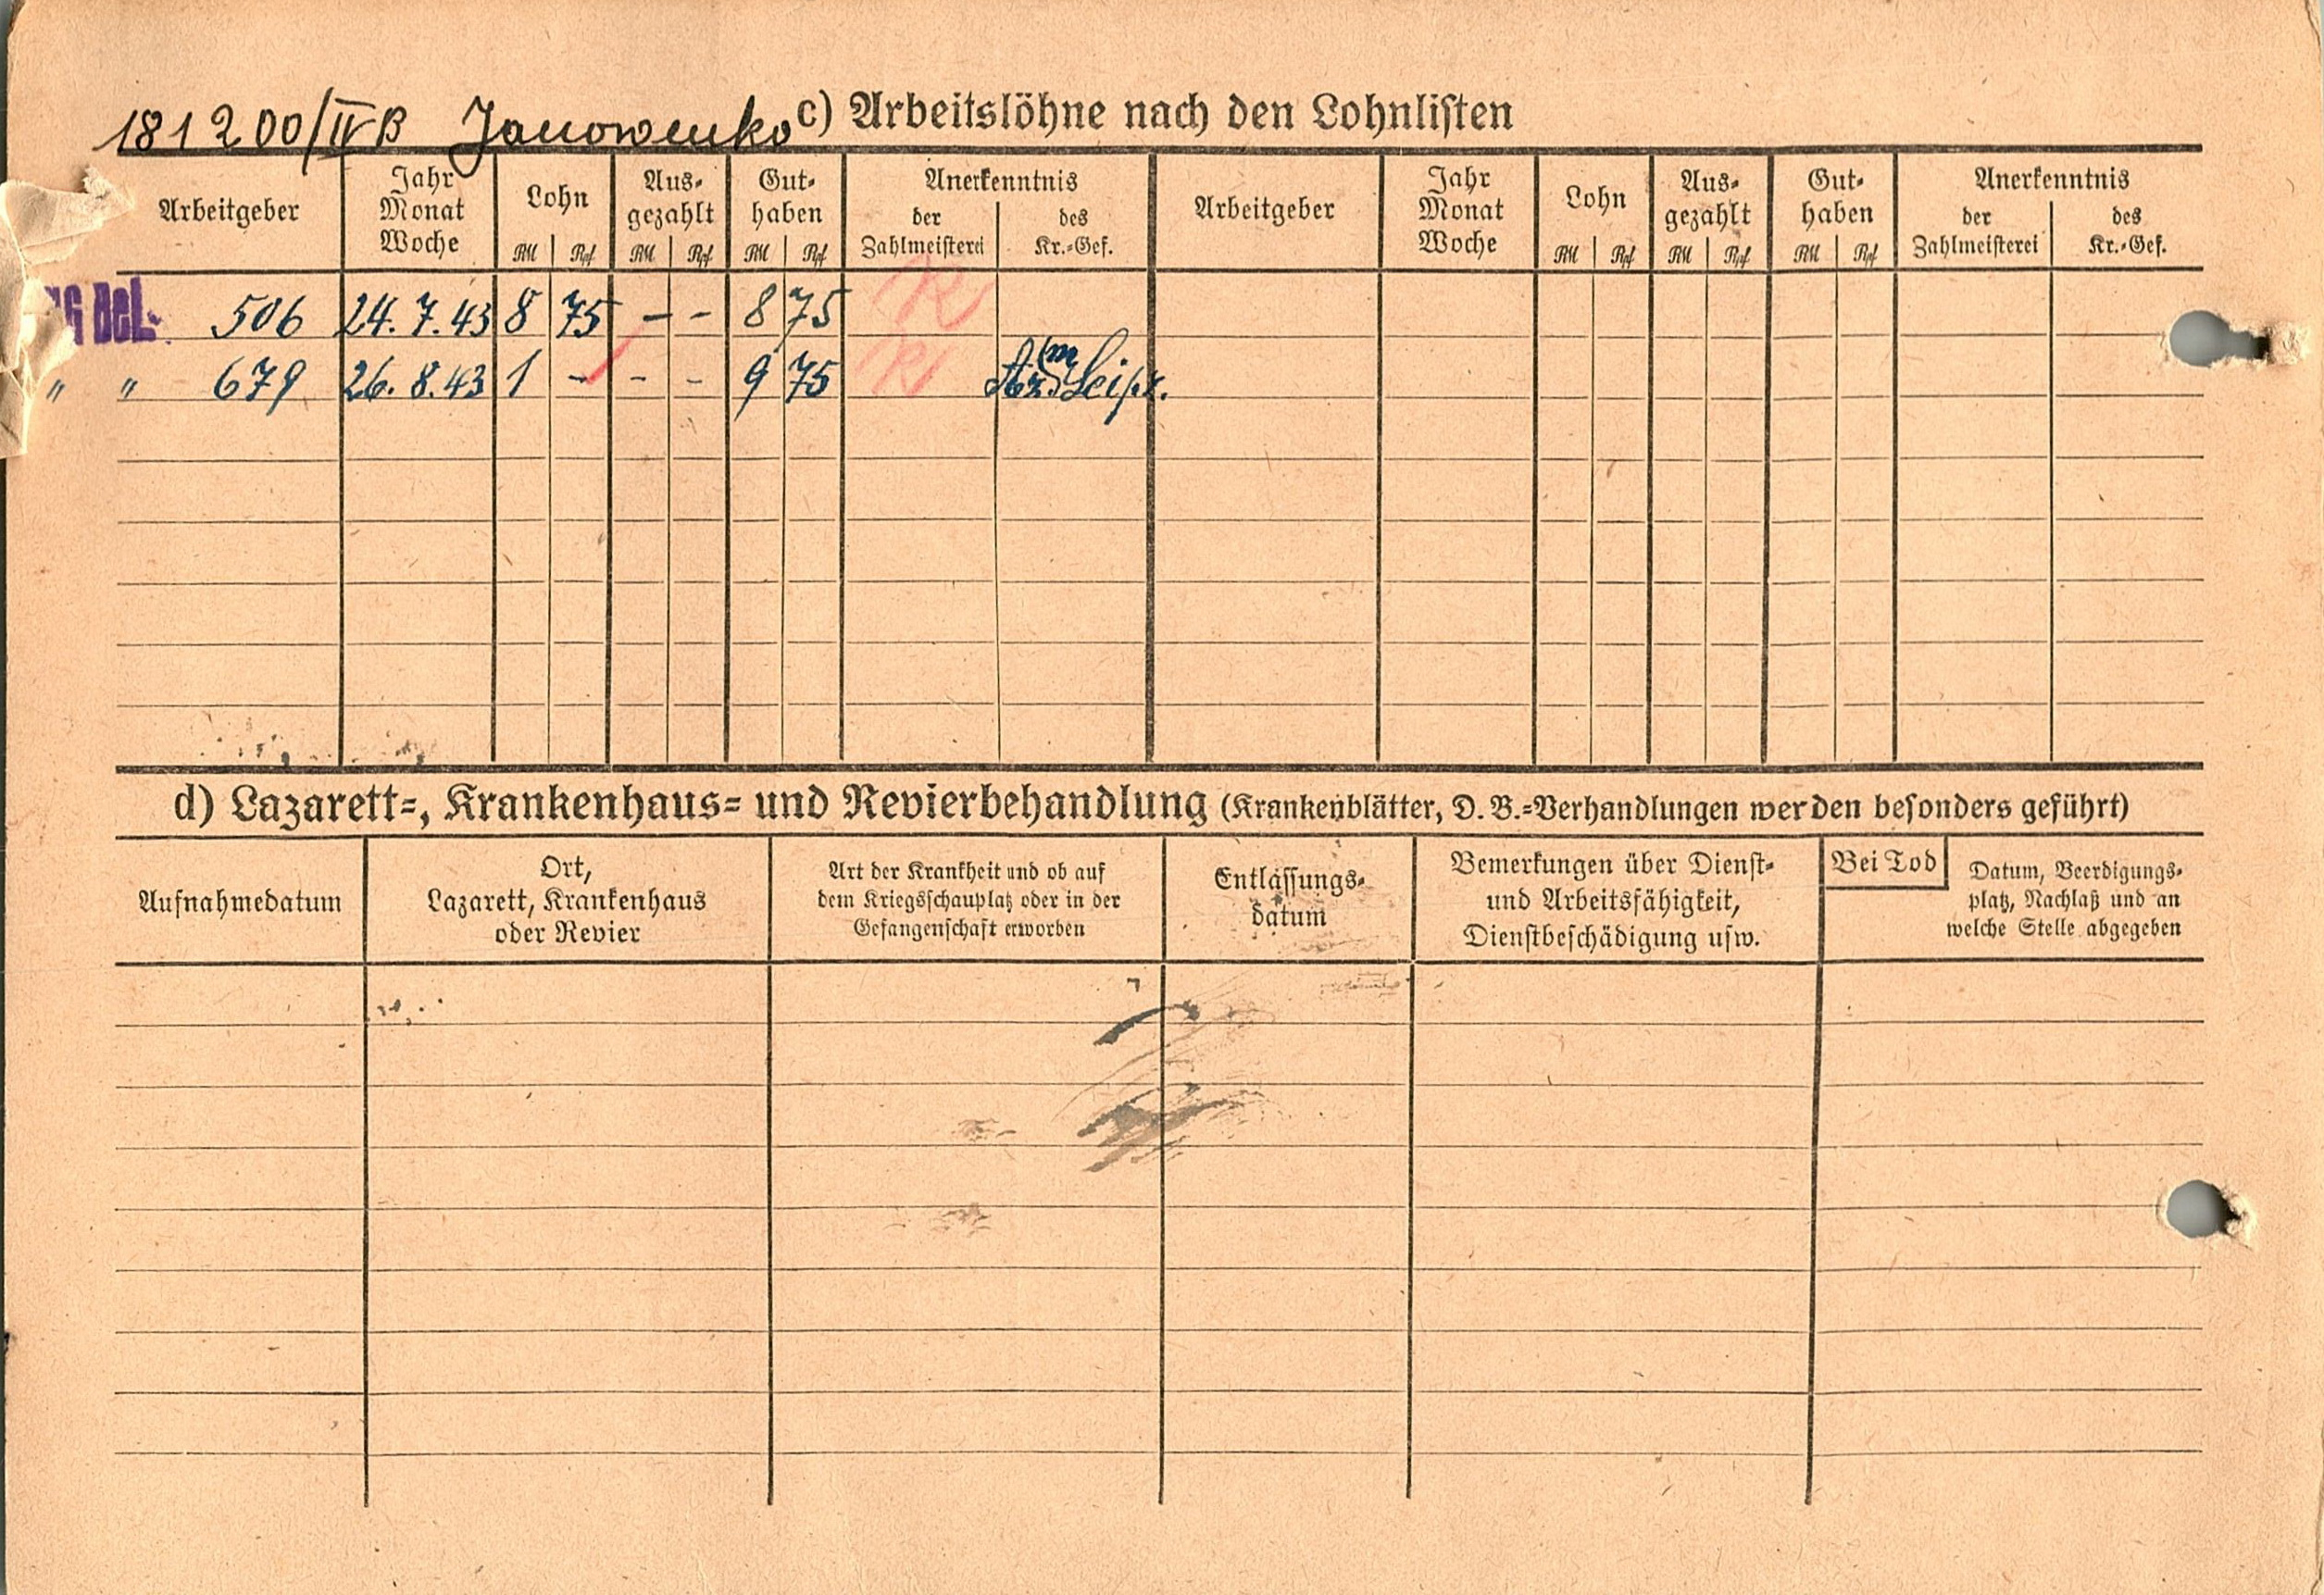 181200/IVB Janowenko c) Arbeitslöhne nach den Lohnlisten
Arbeitgeber Jahr Monat Woche Lohn RM Rpf Aus-gezahlt RM Rpf Gut-haben RM Rpf Anerkenntnis der Zahlmeisterei des Kr.-Gef. Arbeitgeber Jahr Monat Woche Lohn RM Rpf Aus-gezahlt RM Rpf Gut-haben RM Rpf Anerkenntnis der Zahlmeisterei des Kr.-Gef.
G Bel. 506 24. 7. 43 8 75 - - 8 75 R
" " 679 26. 8. 43 1 - - - 9 75 R
d) Lazarett-, Krankenhaus- und Revierbehandlung (Krankenblätter, D. B.-Verhandlungen werden besonders geführt)
Aufnahmedatum Ort, Lazarett, Krankenhaus oder Revier Art der Krankheit und ob auf dem Kriegsschauplatz oder in der Gefangenschaft erworben Entlassungs-datum Bemerkungen über Dienst- und Arbeitsfähigkeit, Dienstbeschädigung usw. Bei Tod Datum, Beerdigungs-platz, Nachlaß und an welche Stelle abgegeben